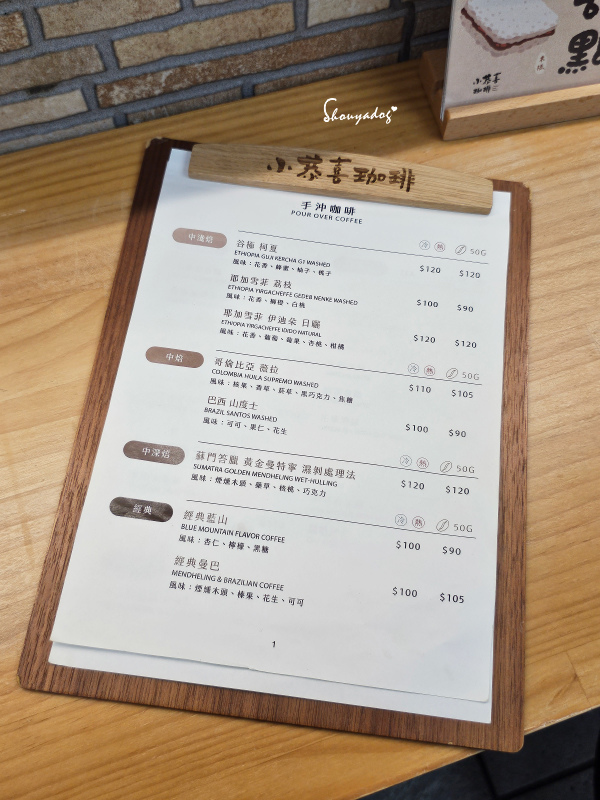 點
小恭喜
咖啡
Shouyadog
小恭喜珈琲
手沖咖啡
POUR OVER COFFEE
中淺焙
冷 熱 50G
谷極 柯夏
ETHIOPIA GUJI KERCHA G1 WASHED
風味：花香、蜂蜜、柚子、橘子
$120 $120
耶加雪菲 荔枝
ETHIOPIA YIRGACHEFFE GEDEB NENKE WASHED
風味：花香、柳橙、白桃
$100 $90
耶加雪菲 伊迪朵 日曬
ETHIOPIA YIRGACHEFFE IDIDO NATURAL
風味：花香、葡萄、莓果、杏桃、柑橘
$120 $120
中焙
冷 熱 50G
哥倫比亞 薇拉
COLOMBIA HUILA SUPREMO WASHED
風味：核果、香草、菸草、黑巧克力、焦糖
$110 $105
巴西 山度士
BRAZIL SANTOS WASHED
風味：可可、果仁、花生
$100 $90
中深焙
冷 熱 50G
蘇門答臘 黃金曼特寧 濕剝處理法
SUMATRA GOLDEN MENDHELING WET-HULLING
風味：煙燻木頭、藥草、核桃、巧克力
$120 $120
經典
冷 熱 50G
經典藍山
BLUE MOUNTAIN FLAVOR COFFEE
風味：杏仁、檸檬、黑糖
$100 $90
經典曼巴
MENDHELING & BRAZILIAN COFFEE
風味：煙燻木頭、榛果、花生、可可
$100 $105
1